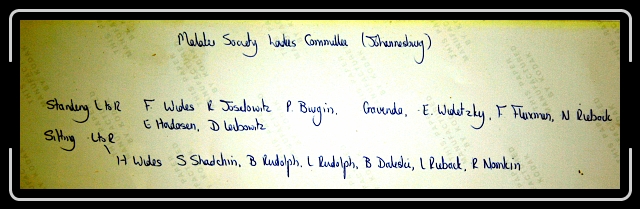 Malater Society Ladies Committee (Johannesburg)
Standing L to R F. Wides R Joselowitz P. Burgin, Gavenda, E. Widetzky, F Fluxman, N Riebock
E Hadasen, D Leibowitz
Sitting L to R
H Wides S Shadchin, B Rudolph, L Rudolph, B Daleski, L Ruback, R Namkin